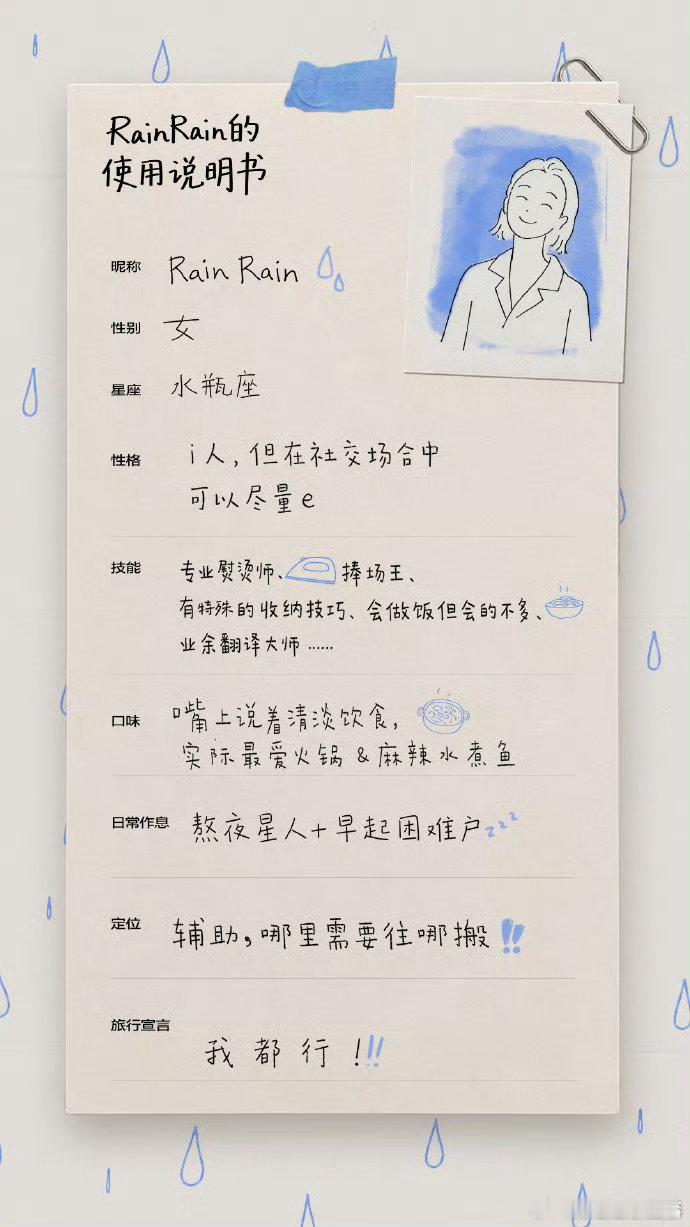 RainRain的
使用说明书
昵称 Rain Rain
性别 女
星座 水瓶座
性格 i人,但在社交场合中
可以尽量e
技能 专业熨烫师、捧场王、
有特殊的收纳技巧、会做饭但会的不多、
业余翻译大师……
口味 嘴上说着清淡饮食,
实际最爱火锅&麻辣水煮鱼
日常作息 熬夜星人+早起困难户zzz
定位 辅助,哪里需要往哪搬!!
旅行宣言 我都行!!!